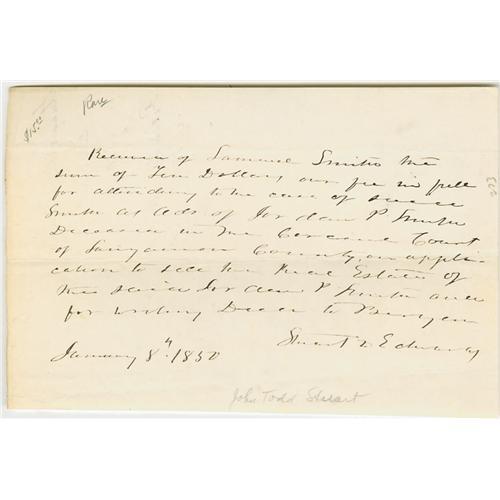 $15.00
Rare
Received of Samuel Smith the
sum of Ten Dollars, our fee in full
for attending to the case of said
Smith as Adr of Jordan P Smith
Deceased in the Circuit Court
of Sangamon County, on appli-
cation to sell the Real Estate of
the said Jordan P Smith and
for writing Deed to
Stuart & Edwards
January 8th, 1850
John Todd Stuart
203